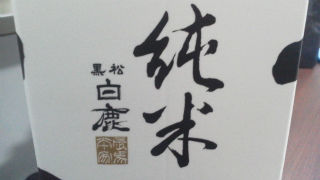 純米
黒松
白鹿